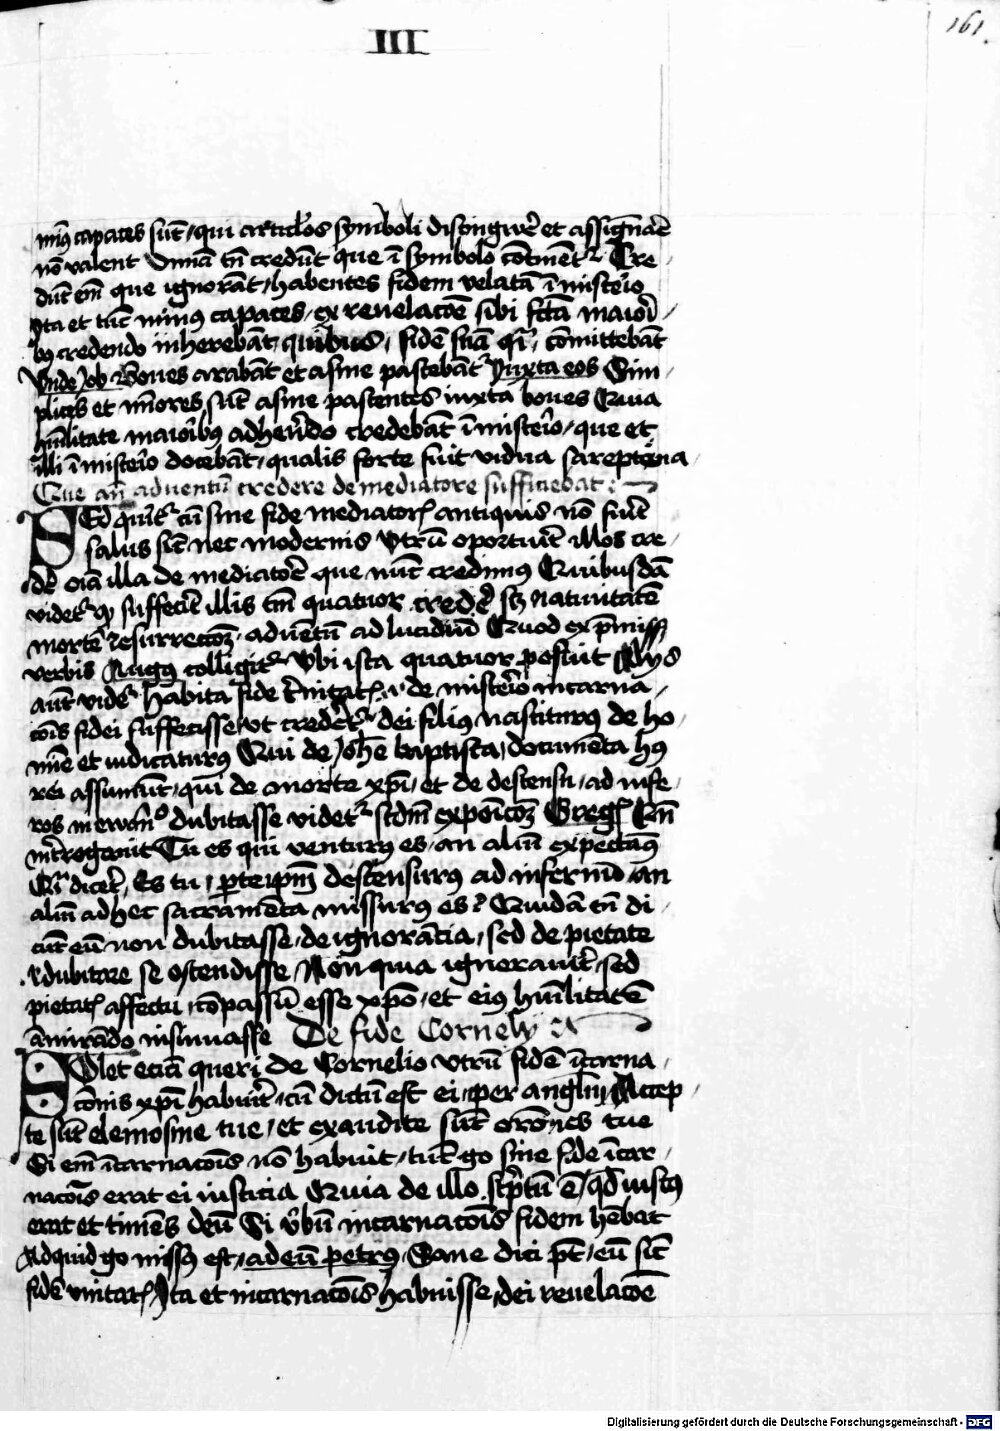 III
161.
min9 capaces sūt / qui articulos symboli distingwē et assignaē
nō valent Omīa tn̄ credūt que ī symbolo cōtinēt᷑ Cre /
dūt em̄ que ignorāt / habentes fidem velatā ī misterio
Ita et tūc min9 capaces / ex reuelacōe sibi fc̄ta maiori /
b9 credendo inherebāt / quibus / fidē suā q̄si / cōmittebāt
Vnde Job Boues arabāt et asine pascebāt᷑ Juxta eos Sim /
plices et minores sūt asine pascentes iuxta boues Quia
hūilitate maiorib9 adherēdo credebāt ī misterio / que et
illi ī misterio docebāt / qualis forte fuit vidua sareptena /
Que an̄ aduentū credere de mediatore sufficiebat :
SEd querit᷑ cū sine fide mediatoris antiquis nō fuit
salus sic̄ nec modernis vtrū oportuit illos cre /
dē oīa illa de mediatore que nūc credimus Quibusdā
videt᷑ ꝙ suffecit illis tm̄ quatuor credē sꝫ natiuitatē
mortē resurreccōꝫ aduētū ad iudiciū Quod ex p̄miss
verbis Augꝰ colligit᷑ Vbi ista quatuor posuit Alijs
aūt videt᷑ habita fide t̄nitatis de misterio incarna /
cōis fidei suffecisse vt crederet᷑ dei filius nasciturꝰ de ho /
mīe et iudicaturꝰ Qui de Johē baptista / documēta hꝰ
rei assumūt / qui de morte xp̄i / et de descensu / ad infe /
ros in ewāḡo dubitasse videt᷑ scdm̄ exposicōꝫ Gregꝰ Cū
int̄rogauit Tu es qui venturꝰ es / an aliū expectāꝰ
Q̄si dicēt / Es tu / p̱ te ip̄m descensurꝰ ad infernū an
aliū ad hec sacramēta missurꝰ es ? Quidā tn̄ di /
cūt eū non dubitasse / de ignorācia / sed de pietate
dubitare se ostendisse / Non quia ignorauit / sed
pietatis affectu / cōpassū esse xp̄o / et eiꝰ hūilitatē
āmirādo insinuasse De fide Cornely
SOlet eciā queri de Cornelio vtrū fidē īcarna /
cōnis xp̄i habuit / cū dictū est ei / per angl̄m Accep /
te sūt elemosine tue / et exaudite sūt orōnes tue
Si em̄ īcarnacōis nō habuit / tūc go sine fide īcar /
nacōis erat ei iusticia Quia de illo sc̄ptū ē / qd̄ iustꝰ
erat et timēs deū Si v̄bū incarnacōis fidem hēbat
Ad quid go missꝰ est / ad eū petrꝰ Sane dici pōt / eū sic̄
fidē vnitatis Ita et incarnacōis habuisse / dei reuelacōe
Digitalisierung gefördert durch die Deutsche Forschungsgemeinschaft - DFG